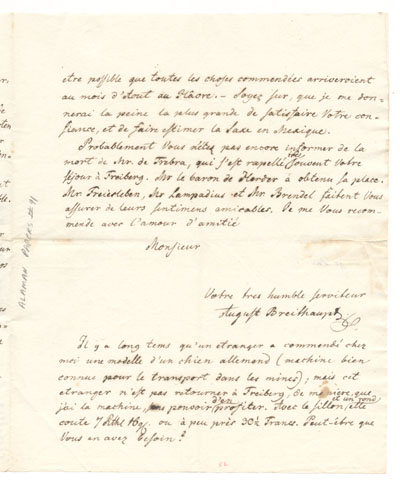 etre possible que toutes les choses commendées arriveroient
au mois d'Aout au Hâvre. – Soyez sur, que je me don-
nerai la peine la plus grande de satisfaire Votre con-
fiance, et de faire estimer la Saxe en Mexique.
Probablement Vous n'êtes pas encore informer de la
mort de Mr. de Trebra, qui s'est rapellé très souvent Votre
séjour à Freiberg. Mr le baron de Herder à obtenu sa place.
Mr Freiesleben, Mr Lampadius et Mr Brendel faitent Vous
assurer de leurs sentimens amicables. Je me Vous recom-
mende avec l'amour d'amitié
Monsieur
Votre tres humble serviteur
August Breithaupt
Il y a long tems qu'un etranger a commendé chez
moi une modelle d'un chien allemand (machine bien
connue pour le transport dans les mines); mais cet
etranger n'est pas retourner à Freiberg, de manière, que
j'ai la machine, pouvoir d'en profiter. Avec le sillon, et un rond elle
coute 7 Rthl 18 gr. ou à peu près 30½ Francs. Peut-être que
Vous en avez besoin?
ALAMAN PAPERS